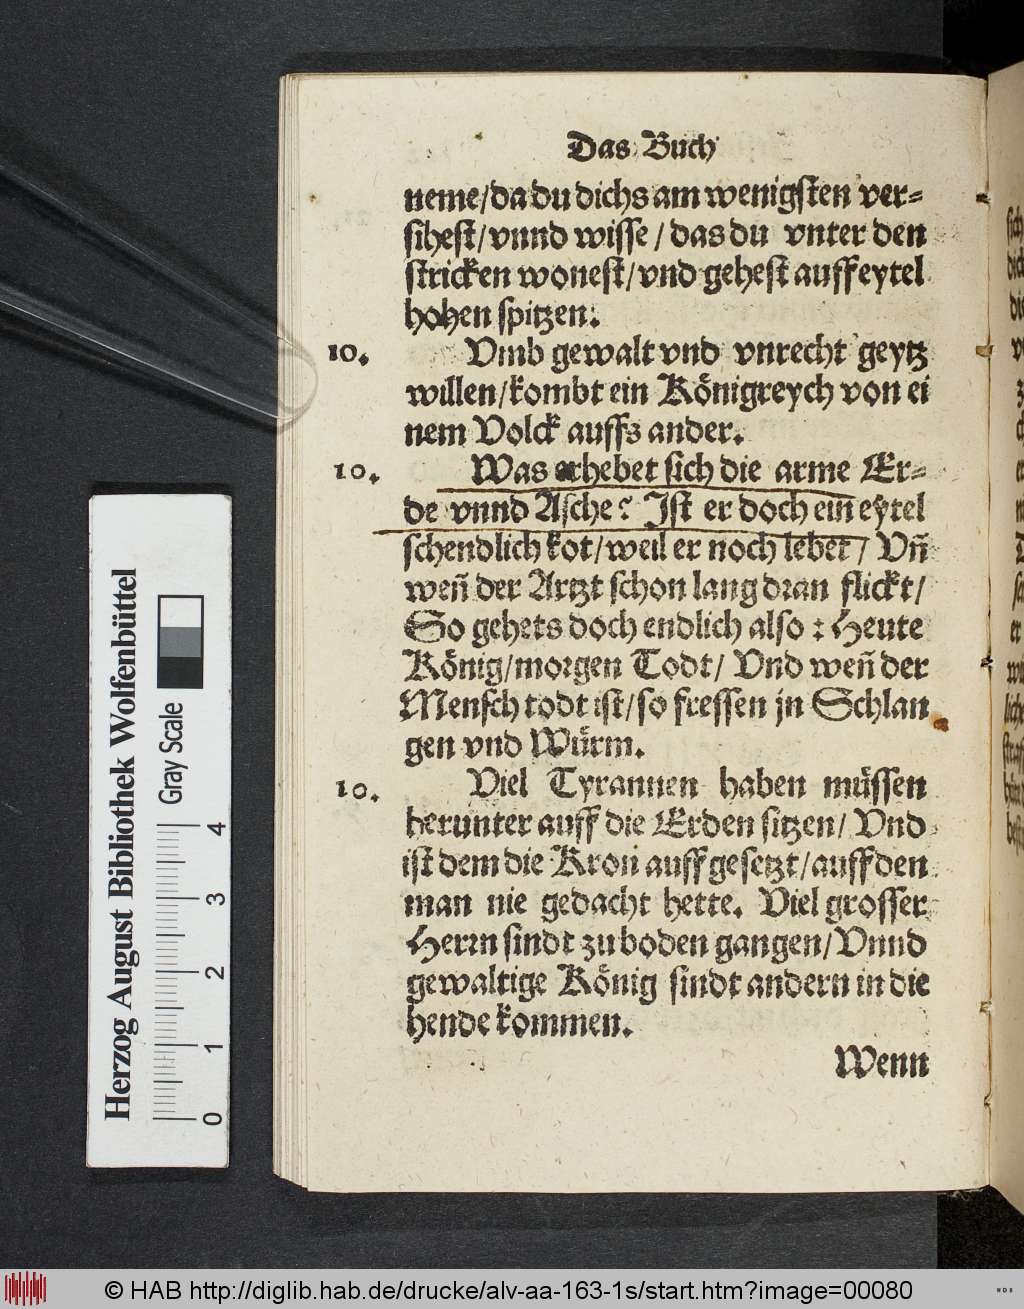 Das Buch
neme/da du dichs am wenigsten ver-
sihest/vnnd wisse/das du vnter den
stricken wonest/vnd gehest auff eytel
hohen spitzen.
10. Vmb gewalt vnd vnrecht geytz
willen/kombt ein Königreych von ei
nem Volck auffs ander.
10. Was erhebet sich die arme Er-
de vnnd Asche? Ist er doch ein eytel
schendlich kot/weil er noch lebet/Vñ
weñ der Artzt schon lang dran flickt/
So gehets doch endlich also: Heute
König/morgen Todt/Vnd weñ der
Mensch todt ist/so fressen jn Schlan
gen vnd Würm.
10. Viel Tyrannen haben müssen
herunter auff die Erden sitzen/Vnd
ist dem die Kron auffgesetzt/auff den
man nie gedacht hette. Viel grosser
Herrn sindt zu boden gangen/Vnnd
gewaltige König sindt andern in die
hende kommen.
Wenn
Herzog August Bibliothek Wolfenbüttel
Gray Scale
0 1 2 3 4
© HAB http://diglib.hab.de/drucke/alv-aa-163-1s/start.htm?image=00080